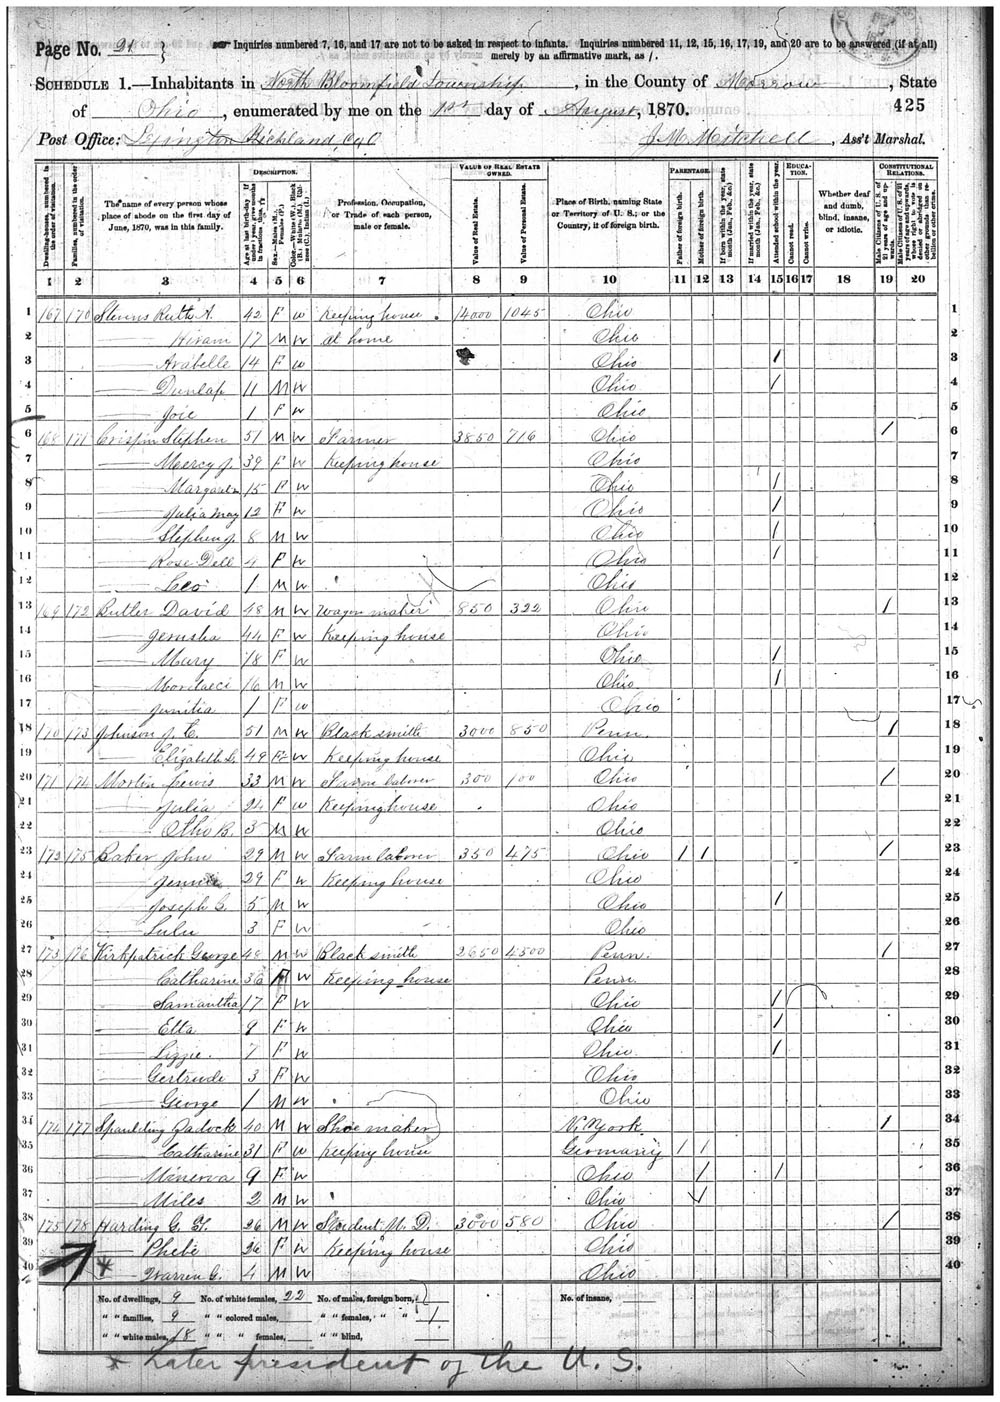 Page No. 21 } Inquiries numbered 7, 16, and 17 are not to be asked in respect to infants. Inquiries numbered 11, 12, 15, 16, 17, 19, and 20 are to be answered (if at all)
merely by an affirmative mark, as /.
SCHEDULE 1.—Inhabitants in North Bloomfield Township, in the County of Morrow, State
of Ohio, enumerated by me on the 1st day of August, 1870. 425
Post Office: Lexington Richland Co O J. M. Mitchell, Ass't Marshal.
DESCRIPTION. VALUE OF REAL ESTATE OWNED. PARENTAGE. EDUCATION. CONSTITUTIONAL RELATIONS.
Dwelling-houses, numbered in the order of visitation. Families, numbered in the order of visitation. The name of every person whose place of abode on the first day of June, 1870, was in this family. Profession, Occupation, or Trade of each person, male or female. Value of Real Estate. Value of Personal Estate. Place of Birth, naming State or Territory of U. S.; or the Country, if of foreign birth. Father of foreign birth. Mother of foreign birth. Attended school within the year. Cannot read. Cannot write. Whether deaf and dumb, blind, insane, or idiotic.
1 2 3 4 5 6 7 8 9 10 11 12 13 14 15 16 17 18 19 20
1 167 170 Stevens Ruth A. 42 F W Keeping house 14000 1045 Ohio 1
2 —— Hiram 17 M W At home Ohio 2
3 —— Arabelle 14 F W Ohio / 3
4 —— Dunlap 11 M W Ohio / 4
5 —— Joie 1 F W Ohio 5
6 168 171 Crispin Stephen 51 M W Farmer 3850 716 Ohio / 6
7 —— Mercy J. 39 F W Keeping house Ohio 7
8 —— Margaret 15 F W Ohio / 8
9 —— Julia May 12 F W Ohio / 9
10 —— Stephen J. 8 M W Ohio / 10
11 —— Rose Dell 4 F W Ohio / 11
12 —— Leo 1 M W Ohio 12
13 169 172 Butler David 48 M W Wagon maker 850 322 Ohio / 13
14 —— Jerusha 44 F W Keeping house Ohio 14
15 —— Mary 18 F W Ohio / 15
16 —— 16 M W Ohio / 16
17 —— 1 F W Ohio 17
18 170 173 Johnson J. C. 51 M W Black smith 3000 850 Penn. / 18
19 —— Elizabeth L. 49 F W Keeping house Ohio 19
20 171 174 Lewis 33 M W Farm laborer 300 100 Ohio / 20
21 —— Julia 24 F W Keeping house Ohio 21
22 —— Otho B. 3 M W Ohio 22
23 172 175 Baker John 29 M W Farm laborer 350 475 Ohio / / / 23
24 —— Jennie 29 F W Keeping house Ohio 24
25 —— Joseph C. 5 M W Ohio / 25
26 —— Lulu 3 F W Ohio 26
27 173 176 Kirkpatrick George 48 M W Black smith 2650 4500 Penn. / 27
28 —— Catharine 36 F W Keeping house Penn. 28
29 —— Samantha 17 F W Ohio / 29
30 —— Etta 9 F W Ohio / 30
31 —— Lizzie 7 F W Ohio / 31
32 —— Gertrude 3 F W Ohio 32
33 —— George 1 M W Ohio 33
34 174 177 Spaulding Zadock 40 M W Shoe maker N. York / 34
35 —— Catharine 31 F W Keeping house Germany / / 35
36 —— Minerva 9 F W Ohio / / 36
37 —— Miles 2 M W Ohio / 37
38 175 178 Harding G. T. 26 M W Student M. D. 3000 580 Ohio / 38
39 —— Phebe 26 F W Keeping house Ohio 39
40 * —— Warren G. 4 M W Ohio 40
No. of dwellings, 9 No. of white females, 22 No. of males, foreign born, No. of insane,
" " families, 9 " " colored males, " " females, " " 1
" " white males, 18 " " " females, " " blind,
* Later president of the U. S.